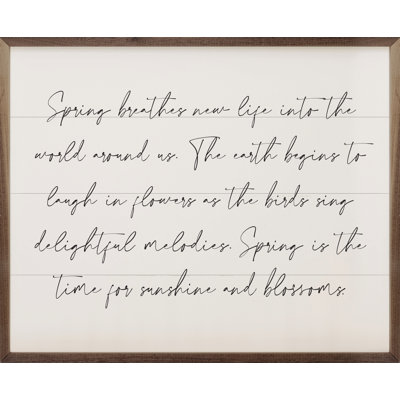 Spring breathes new life into the
world around us. The earth begins to
laugh in flowers as the birds sing
delightful melodies. Spring is the
time for sunshine and blossoms.